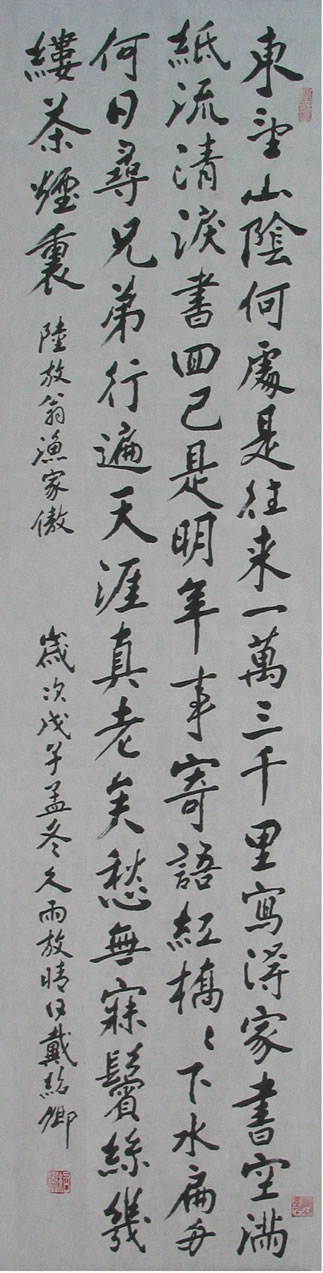 東望山陰何處是往来一萬三千里寫得家書空滿
紙流清淚書回已是明年事寄語紅橋〻下水扁舟
何日尋兄弟行遍天涯真老矣愁無寐鬢絲幾
縷茶煙裏 陸放翁漁家傲 歲次戊子孟冬久雨放晴日戴紹卿